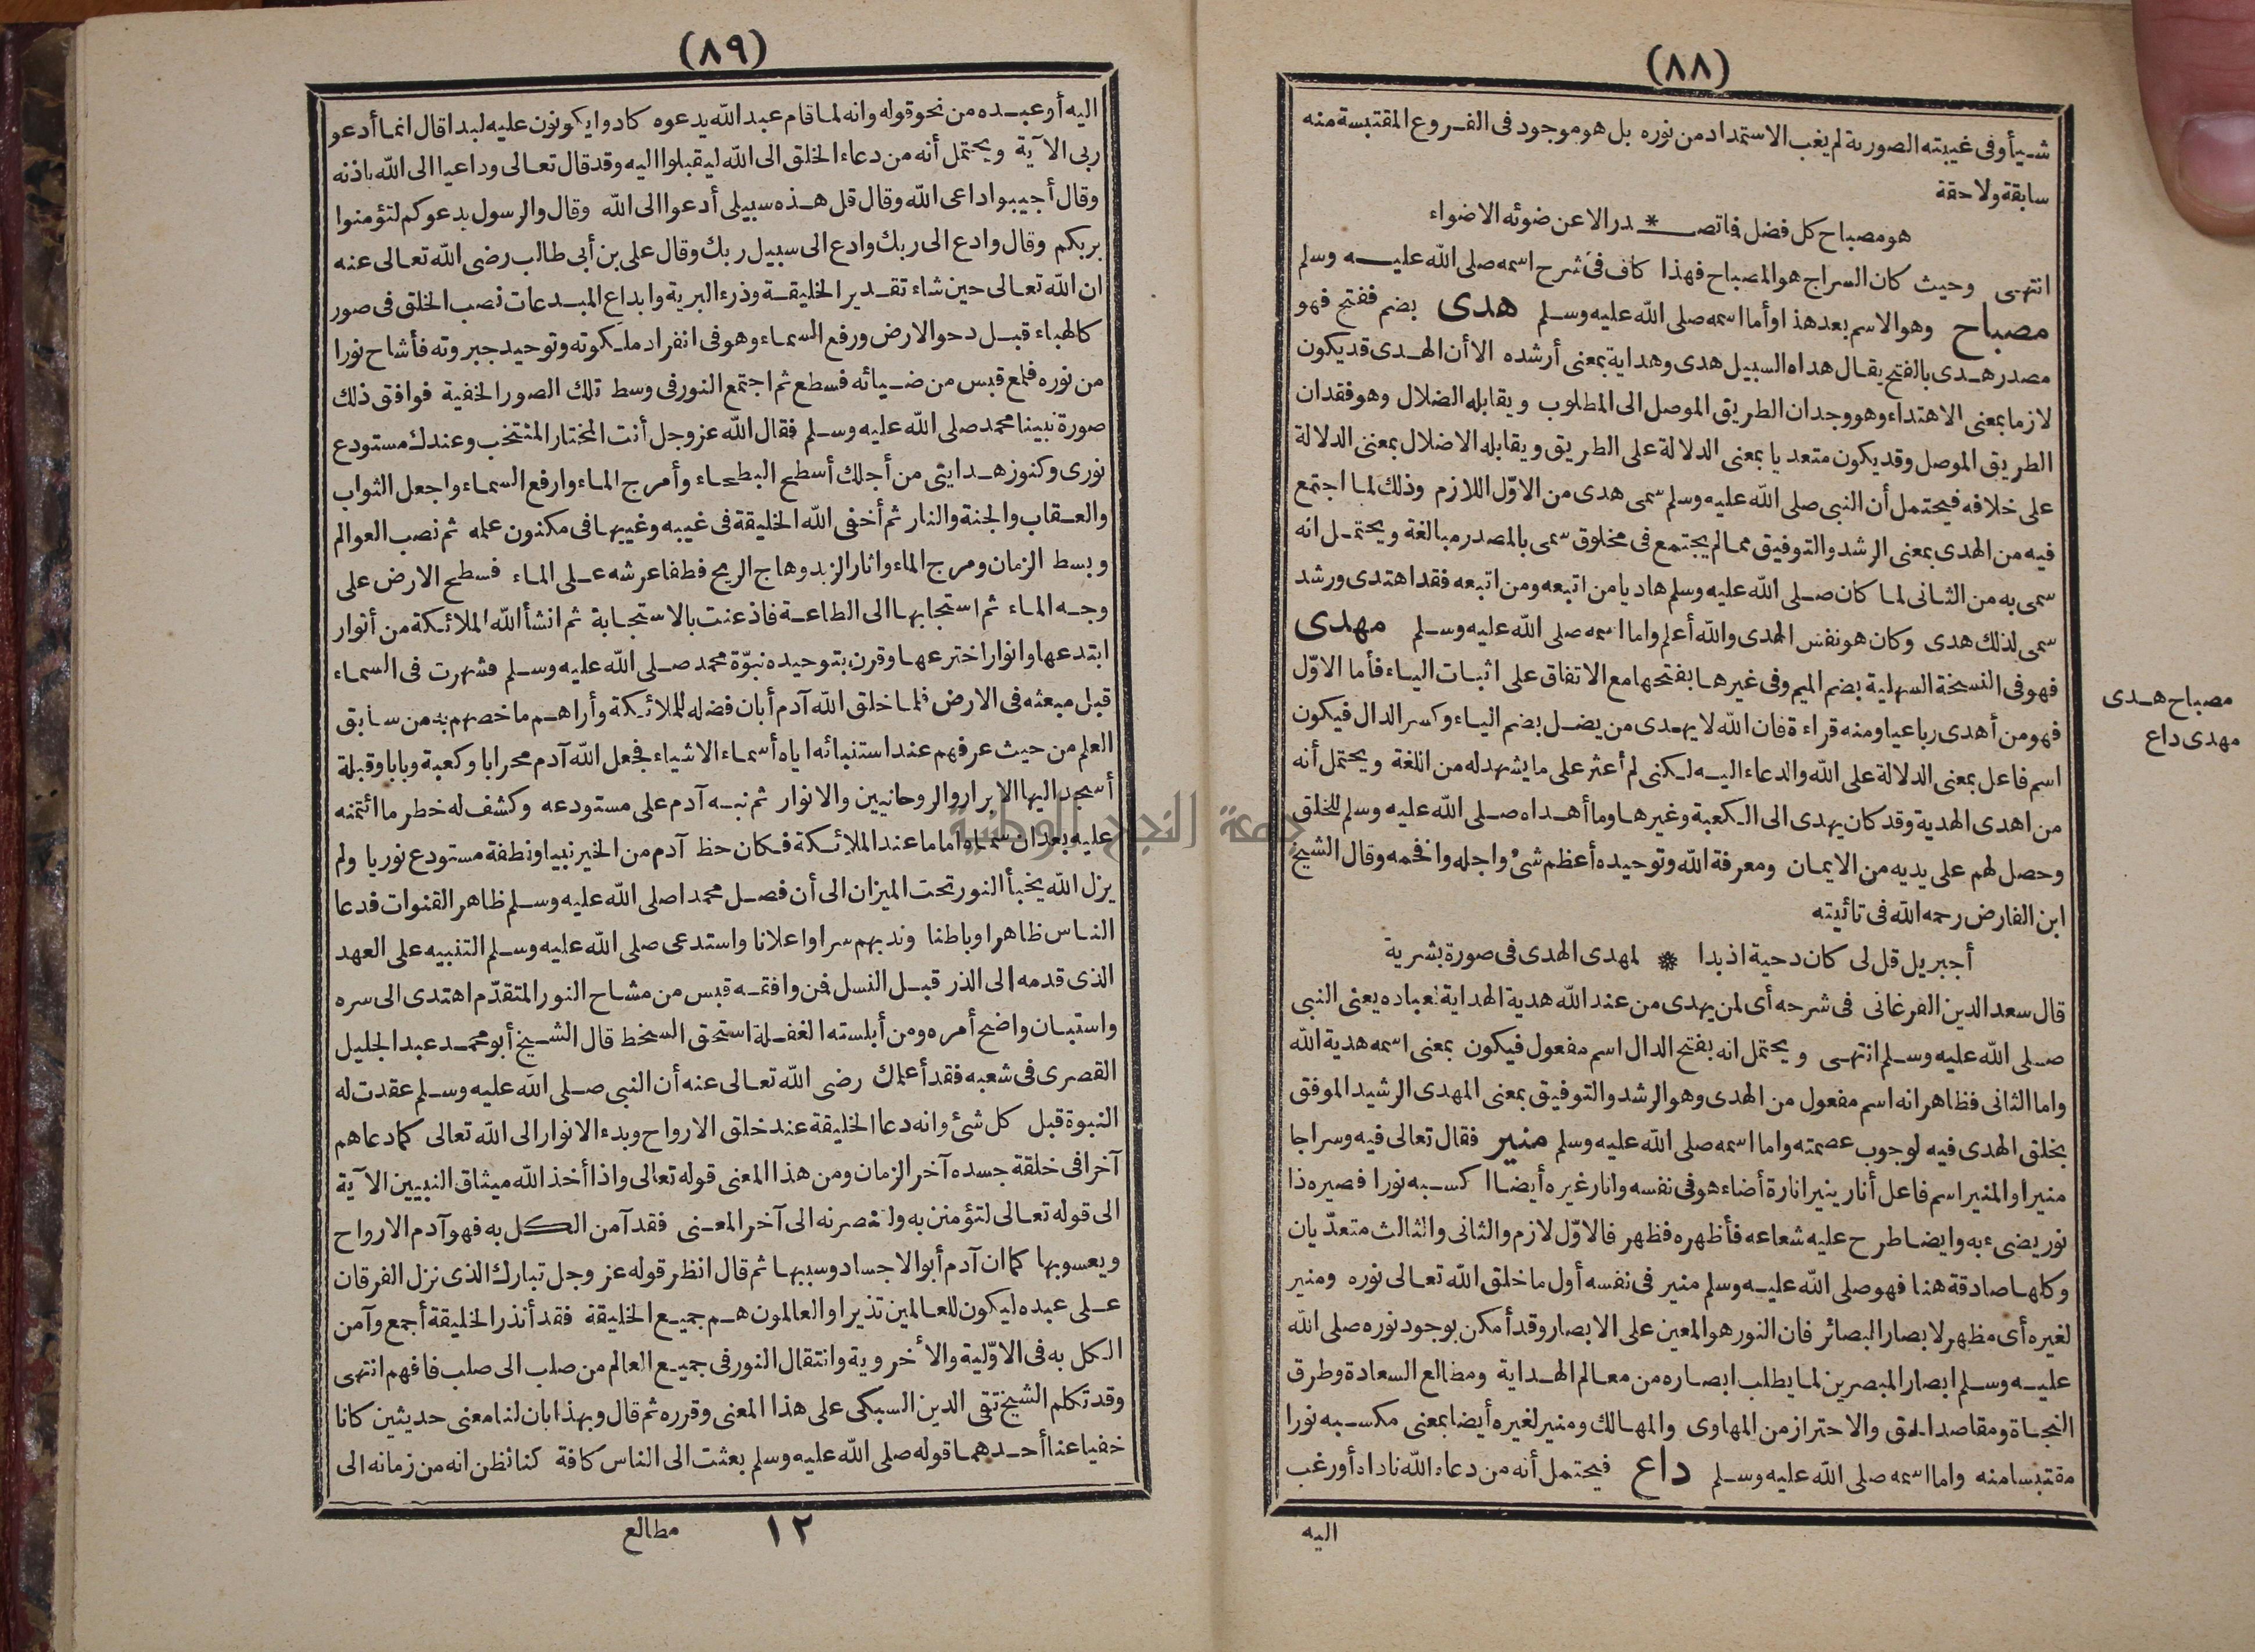 (٨٨)
شيأ وفى غيبته الصورية لم يغب الاستمداد من نوره بل هو موجود فى الفروع المقتبسة منه
سابقة ولاحقة
هو مصباح كل فضل فاتصـ * ـدر الا عن ضوئه الاضواء
انتهى وحيث كان السراج هو المصباح فهذا كاف فى شرح اسمه صلى الله عليه وسلم
مصباح وهو الاسم بعد هذا وأما اسمه صلى الله عليه وسلم هدى بضم ففتح فهو
مصدر هدى بالفتح يقال هداه السبيل هدى وهداية بمعنى أرشده الا أن الهدى قد يكون
لازما بمعنى الاهتداء وهو وجدان الطريق الموصل الى المطلوب ويقابله الضلال وهو فقدان
الطريق الموصل وقد يكون متعديا بمعنى الدلالة على الطريق ويقابله الاضلال بمعنى الدلالة
على خلافه فيحتمل أن النبى صلى الله عليه وسلم سمى هدى من الاوّل اللازم وذلك لما اجتمع
فيه من الهدى بمعنى الرشد والتوفيق مما لم يجتمع فى مخلوق سمى بالمصدر مبالغة ويحتمل انه
سمى به من الثانى لما كان صلى الله عليه وسلم هاديا من اتبعه ومن اتبعه فقد اهتدى ورشد
سمى لذلك هدى وكان هو نفس الهدى والله أعلم واما اسمه صلى الله عليه وسلم مهدى
فهو فى النسخة السهلية بضم الميم وفى غيرها بفتحها مع الاتفاق على اثبات الياء فأما الاوّل
فهو من أهدى رباعيا ومنه قراءة فان الله لا يهدى من يضل بضم الياء وكسر الدال فيكون
اسم فاعل بمعنى الدلالة على الله والدعاء اليه لكنى لم أعثر على ما يشهد له من اللغة ويحتمل أنه
من اهدى الهدية وقد كان يهدى الى الكعبة وغيرها وما أهداه صلى الله عليه وسلم للخلق
وحصل لهم على يديه من الايمان ومعرفة الله وتوحيده أعظم شئ واجله وافخمه وقال الشيخ
ابن الفارض رحمه الله فى تائيته
أجبريل قل لى كان دحية اذ بدا * لمهدى الهدى فى صورة بشرية
قال سعد الدين الفرغانى فى شرحه أى لمن يهدى من عند الله هدية الهداية لعباده يعنى النبى
صلى الله عليه وسلم انتهى ويحتمل انه بفتح الدال اسم مفعول فيكون بمعنى اسمه هدية الله
واما الثانى فظاهر انه اسم مفعول من الهدى وهو الرشد والتوفيق بمعنى المهدى الرشيد الموفق
بخلق الهدى فيه لوجوب عصمته واما اسمه صلى الله عليه وسلم منير فقال تعالى فيه وسراجا
منيرا والمنير اسم فاعل أنار ينير انارة أضاء هو فى نفسه وانار غيره أيضا اكسبه نورا فصيره ذا
نور يضىء به وايضا طرح عليه شعاعه فأظهره فظهر فالاوّل لازم والثانى والثالث متعدّيان
وكلها صادقة هنا فهو صلى الله عليه وسلم منير فى نفسه أول ما خلق الله تعالى نوره ومنير
لغيره أى مظهر لابصار البصائر فان النور هو المعين على الابصار وقد أمكن بوجود نوره صلى الله
عليه وسلم ابصار المبصرين لما يطلب ابصاره من معالم الهداية ومطالع السعادة وطرق
النجاة ومقاصد الحق والاحتراز من المهاوى والمهالك ومنير لغيره أيضا بمعنى مكسبه نورا
مقتبسا منه واما اسمه صلى الله عليه وسلم داع فيحتمل أنه من دعاه الله ناداه أو رغب
اليه
مصباح هدى
مهدى داع
(٨٩)
اليه أو عبده من نحو قوله وانه لما قام عبد الله يدعوه كادوا يكونون عليه لبدا قال انما أدعو
ربى الآية ويحتمل أنه من دعاء الخلق الى الله ليقبلوا اليه وقد قال تعالى وداعيا الى الله باذنه
وقال أجيبوا داعى الله وقال قل هذه سبيلى أدعوا الى الله وقال والرسول يدعوكم لتؤمنوا
بربكم وقال وادع الى ربك وادع الى سبيل ربك وقال على بن أبى طالب رضى الله تعالى عنه
ان الله تعالى حين شاء تقدير الخليقة وذرء البرية وابداع المبدعات نصب الخلق فى صور
كالهباء قبل دحو الارض ورفع السماء وهو فى انفراد ملكوته وتوحيد جبروته فأشاح نورا
من نوره فلمع قبس من ضيائه فسطع ثم اجتمع النور فى وسط تلك الصور الخفية فوافق ذلك
صورة نبينا محمد صلى الله عليه وسلم فقال الله عز وجل أنت المختار المنتخب وعندك مستودع
نورى وكنوز هدايتى من أجلك أسطح البطحاء وأمرج الماء وارفع السماء واجعل الثواب
والعقاب والجنة والنار ثم أخفى الله الخليقة فى غيبه وغيبها فى مكنون علمه ثم نصب العوالم
وبسط الزمان ومرج الماء واثار الزبد وهاج الريح فطفا عرشه على الماء فسطح الارض على
وجه الماء ثم استجابها الى الطاعة فاذعنت بالاستجابة ثم انشأ الله الملائكة من أنوار
ابتدعها وانوار اخترعها وقرن بتوحيده نبوّة محمد صلى الله عليه وسلم فشهرت فى السماء
قبل مبعثه فى الارض فلما خلق الله آدم أبان فضله للملائكة وأراهم ما خصهم به من سابق
العلم من حيث عرفهم عند استنبائه اياه أسماء الاشياء فجعل الله آدم محرابا وكعبة وبابا وقبلة
أسجد اليها الابرار والروحانيين والانوار ثم نبه آدم على مستودعه وكشف له خطر ما ائتمنه
عليه بعد ان سماه اماما عند الملائكة فكان حظ آدم من الخير نبيا ونطفة مستودع نوريا ولم
يزل الله يخبأ النور تحت الميزان الى أن فصل محمدا صلى الله عليه وسلم ظاهر القنوات فدعا
الناس ظاهرا وباطنا وندبهم سرا واعلانا واستدعى صلى الله عليه وسلم التنبيه على العهد
الذى قدمه الى الذر قبل النسل فمن وافقه قبس من مشاح النور المتقدّم اهتدى الى سره
واستبان واضح أمره ومن أبلسته الغفلة استحق السخط قال الشيخ أبو محمد عبد الجليل
القصرى فى شعبه فقد أعلمك رضى الله تعالى عنه أن النبى صلى الله عليه وسلم عقدت له
النبوة قبل كل شئ وانه دعا الخليقة عند خلق الارواح وبدء الانوار الى الله تعالى كما دعاهم
آخرا فى خلقة جسده آخر الزمان ومن هذا المعنى قوله تعالى واذ أخذ الله ميثاق النبيين الآية
الى قوله تعالى لتؤمنن به ولتنصرنه الى آخر المعنى فقد آمن الكل به فهو آدم الارواح
ويعسوبها كما ان آدم أبو الاجساد وسببها ثم قال انظر قوله عز وجل تبارك الذى نزل الفرقان
على عبده ليكون للعالمين نذيرا والعالمون هم جميع الخليقة فقد أنذر الخليقة أجمع وآمن
الكل به فى الاوّلية والأخروية وانتقال النور فى جميع العالم من صلب الى صلب فافهم انتهى
وقد تكلم الشيخ تقى الدين السبكى على هذا المعنى وقرره ثم قال وبهذا بان لنا معنى حديثين كانا
خفيا عنا أحدهما قوله صلى الله عليه وسلم بعثت الى الناس كافة كنا نظن انه من زمانه الى
١٢ مطالع
جامعة النجاح الوطنية